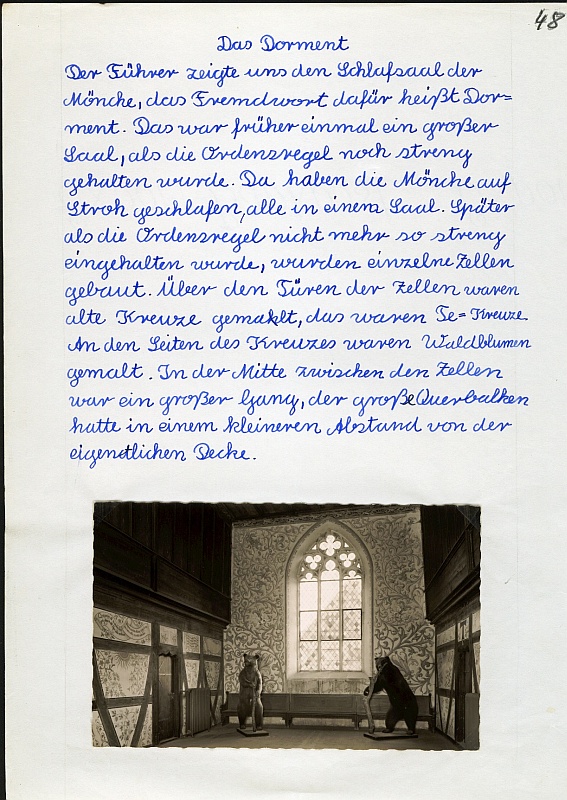 48
Das Dorment
Der Führer zeigte uns den Schlafsaal der
Mönche, das Fremdwort dafür heißt Dor=
ment. Das war früher einmal ein großer
Saal, als die Ordensregel noch streng
gehalten wurde. Da haben die Mönche auf
Stroh geschlafen, alle in einem Saal. Später
als die Ordensregel nicht mehr so streng
eingehalten wurde, wurden einzelne Zellen
gebaut. Über den Türen der Zellen waren
alte Kreuze gemahlt, das waren Te=Kreuze
An den Seiten des Kreuzes waren Waldblumen
gemalt. In der Mitte zwischen den Zellen
war ein großer Gang, der große Querbalken
hatte in einem kleineren Abstand von der
eigendlichen Decke.